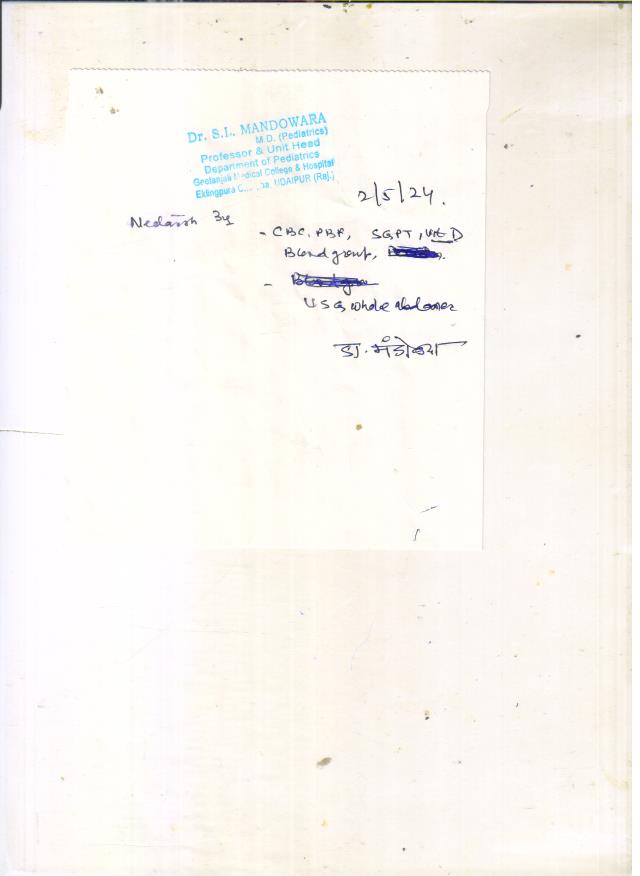 Dr. S.L. MANDOWARA
M.D. (Pediatrics)
Professor & Unit Head
Department of Pediatrics
Geetanjali Medical College & Hospital
Eklingpura UDAIPUR (Raj.)
2/5/24.
3y
- CBC, PBF, SGPT, Vit D
Blood group,
-
USG whole abdomen
डा.